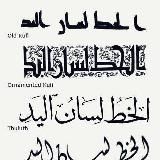 الخط لسان اليد
Old Kufi
الخط لسان اليد
Ornamented Kufi
الخط لسان اليد
Thuluth
الخط لسان اليد